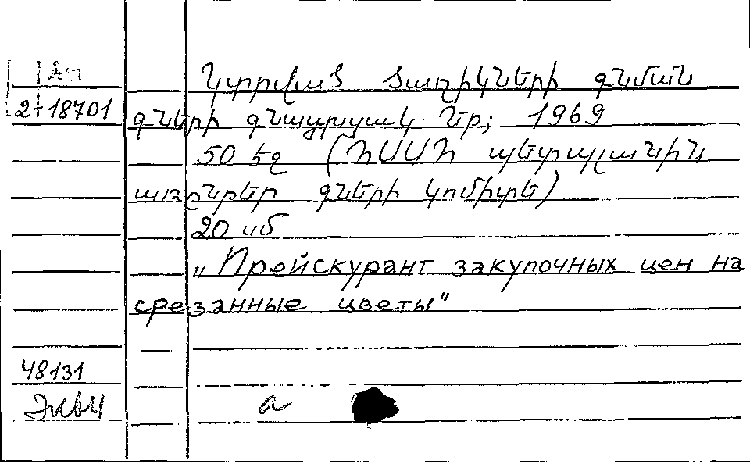 2+18701
Կտրված ծաղիկների գնման
գների գնացուցակ Եր; 1969
50 էջ (ՀՍՍՀ պետպլանին
առընթեր գների կոմիտե)
20 սմ
„Прейскурант закупочных цен на
срезанные цветы"
48131
а